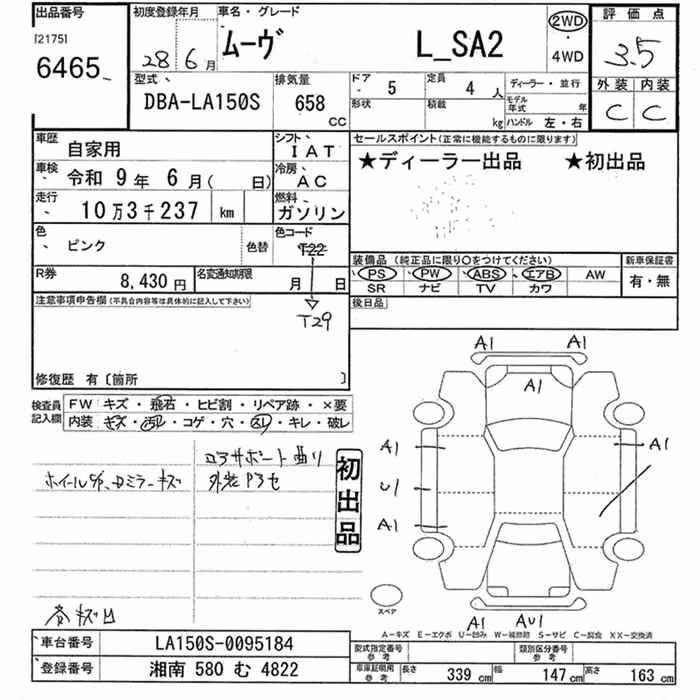 出品番号
[2175]
6465
初度登録年月
28年 6月
車名・グレード
ムーヴ L_SA2
2WD
・
4WD
評価点
3.5
外装 内装
C C
型式
DBA-LA150S
排気量
658
CC
ドア
5
定員
4人
形状
積載
kg
ディーラー・並行
モデル年式 年
ハンドル 左・右
車歴
自家用
シフト
IAT
車検
令和 9年 6月( 日)
冷房
AC
走行
10万3千237 km
燃料
ガソリン
色
ピンク
色替
色コード
T22
T29
R券
8,430円
名変通知期限
月 日
セールスポイント(正常に機能するものに限ります)
★ディーラー出品 ★初出品
装備品(純正品に限り○をつけてください)
PS PW ABS エアB AW
SR ナビ TV カワ
新車保証書
有・無
後日品
注意事項申告欄(不具合内容等は具体的に記入して下さい)
修復歴 有〔箇所 〕
検査員記入欄
FW キズ・飛石・ヒビ割・リペア跡・×要
内装 キズ・汚レ・コゲ・穴・凹・キレ・破レ
コアサポート曲り
ホイールキズ、ドアミラーキズ
初出品
A1 A1
A1
A1
A1
U1
A1
A1 AU1
スペア
A-キズ E-エクボ U-凹み W-補修跡 S-サビ C-腐食 XX-交換済
車台番号
LA150S-0095184
登録番号
湘南 580 む 4822
型式指定番号
参考
類別区分番号
参考
車庫証明用
参考
長さ
339 cm
幅
147 cm
高さ
163 cm